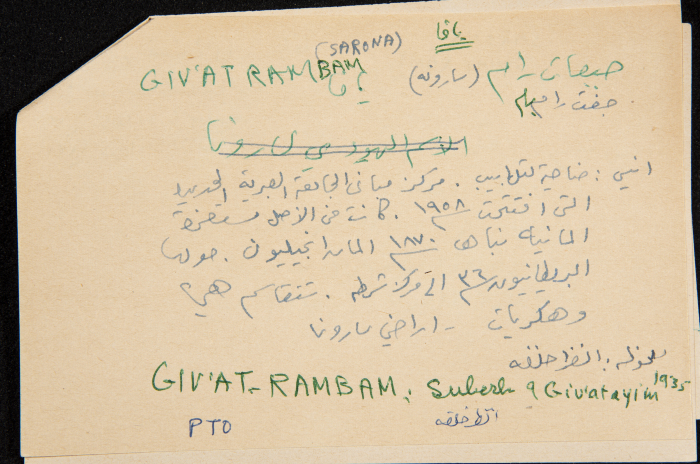 يافا
(SARONA)
GIV'AT RAMBAM جبعات رام (سارونه)
جفت رامبام
الاسم اليهودي لسارونا
انتي : ضاحية لتل ابيب . مركز مباني الجامعة العبرية الجديد
التي افتتحت ١٩٥٨ . كانت في الاصل مستعمرة
المانية بناها ١٨٧٠ الالمان انجيليون . حولها
البريطانيون ٣٦ الى مركز شرطة . تتقاسم هي
وهكريات - اراضي سارونا
انظر خلفه
GIV'AT-RAMBAM: Suburb of Giv'atayim 1935
PTO انظر خلفه